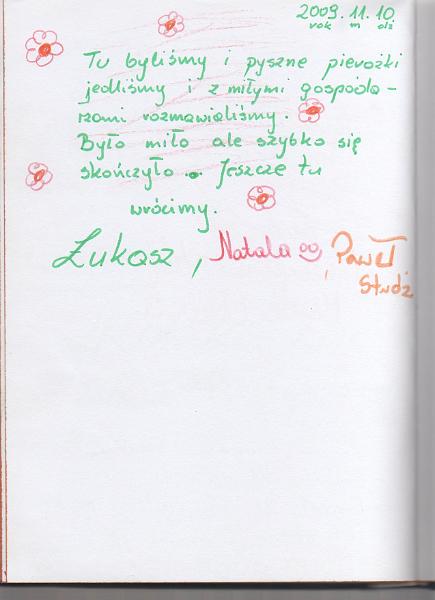 2009.11.10
rok m dz
Tu byliśmy i pyszne pierożki
jedliśmy i z miłymi gospoda-
rzami rozmawialiśmy.
Było miło ale szybko się
skończyło... Jeszcze tu
wrócimy.
Łukasz, Natala, Paweł
Studź